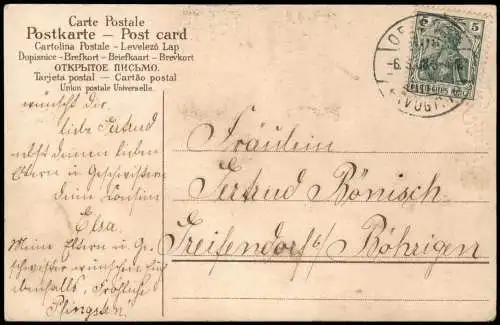 Carte Postale
Postkarte - Post card
Cartolina Postale - Levelező Lap
Dopisnice - Brefkort - Briefkaart - Brevkort
ОТКРЫТОЕ ПИСЬМО.
Tarjeta postal — Cartão postal
Union postale Universelle.
wünscht dir.
liebe Gertrud
nebst deinen lieben
Eltern u. Geschwistern
deine Cousine
Elsa.
Meine Eltern u. Ge-
schwister wünschen Euch
ebenfalls. Fröhliche
Pfingsten.
5
(VOGTL
Fräulein
Gertrud Bönisch
Greifendorf b/ Böhrigen